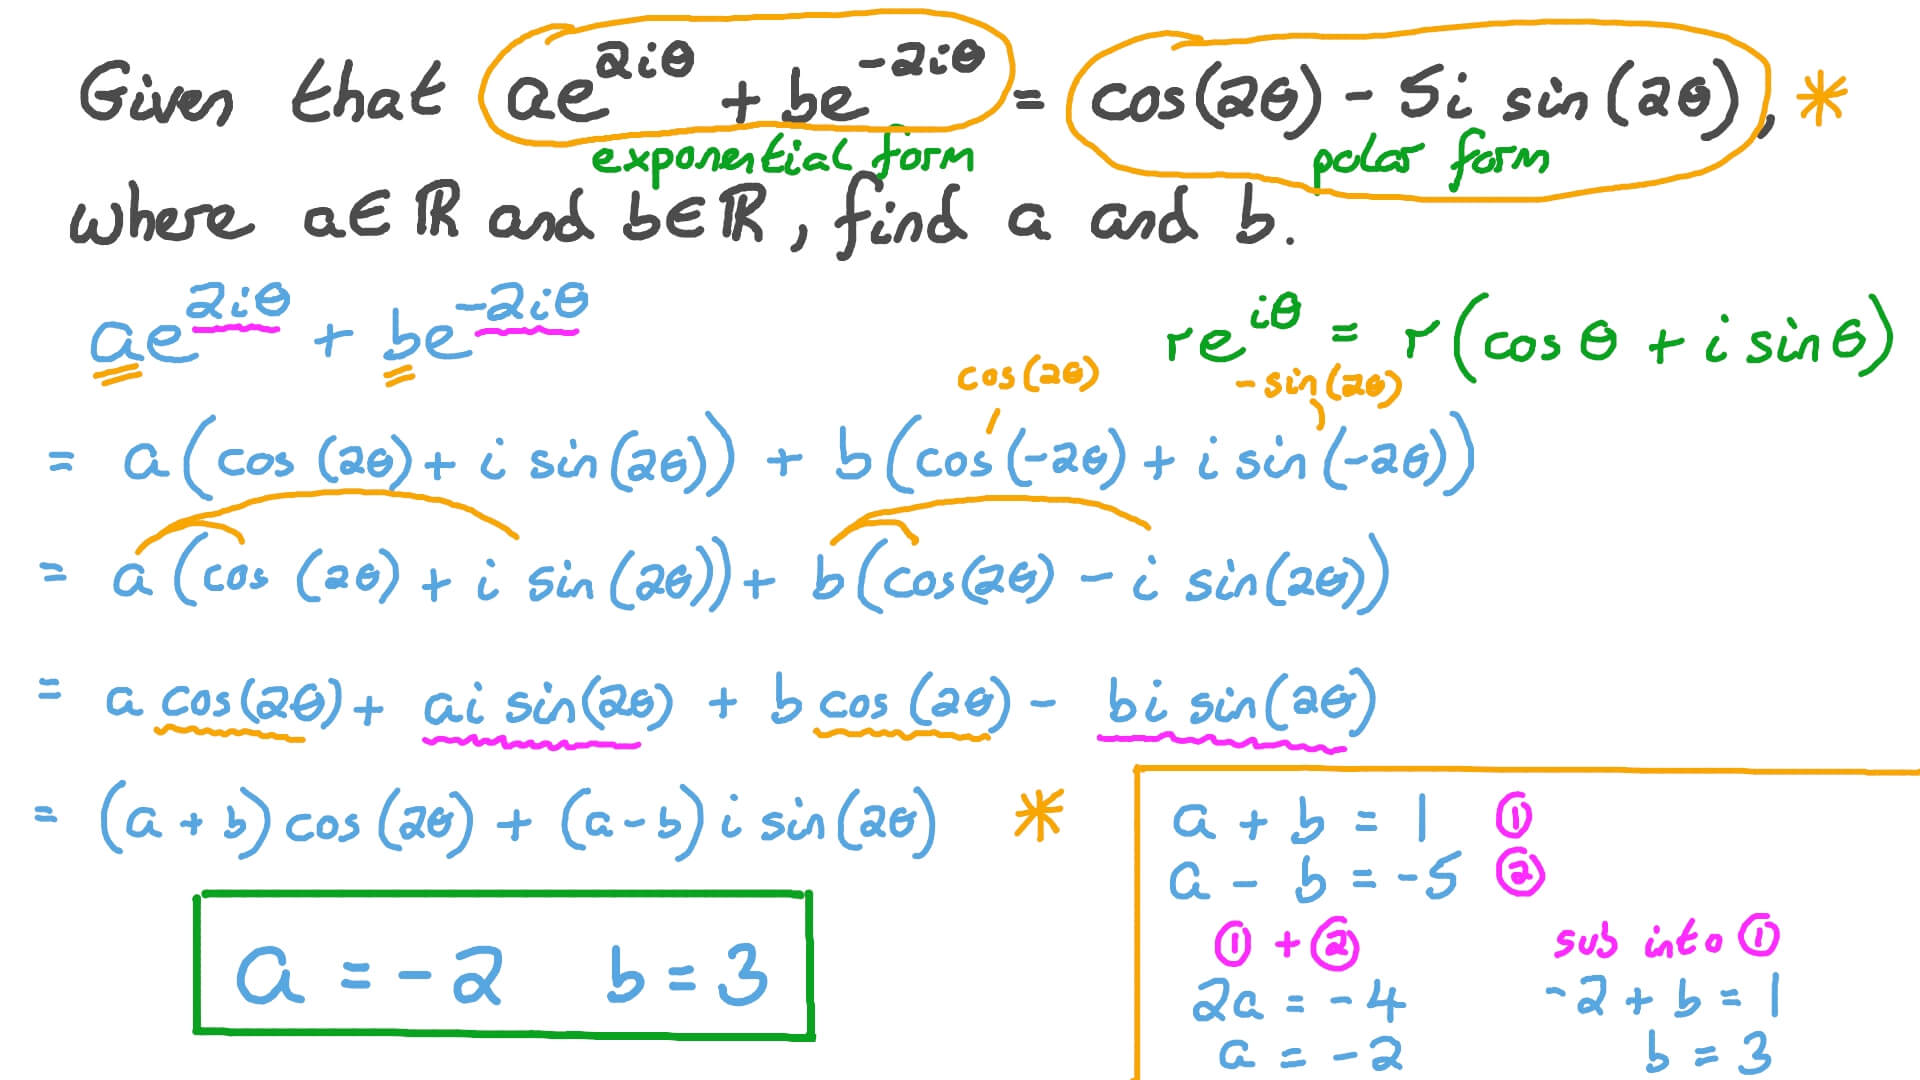 Given that ae^{2iθ} + be^{-2iθ} = cos(2θ) - 5i sin(2θ), *
exponential form polar form
where a∈ℝ and b∈ℝ, find a and b.
ae^{2iθ} + be^{-2iθ}
re^{iθ} = r(cos θ + i sin θ)
cos(2θ) -sin(2θ)
= a(cos(2θ) + i sin(2θ)) + b(cos(-2θ) + i sin(-2θ))
= a(cos(2θ) + i sin(2θ)) + b(cos(2θ) - i sin(2θ))
= a cos(2θ) + ai sin(2θ) + b cos(2θ) - bi sin(2θ)
= (a + b) cos(2θ) + (a - b) i sin(2θ) *
a = -2 b = 3
a + b = 1 ①
a - b = -5 ②
① + ②
2a = -4
a = -2
sub into ①
-2 + b = 1
b = 3